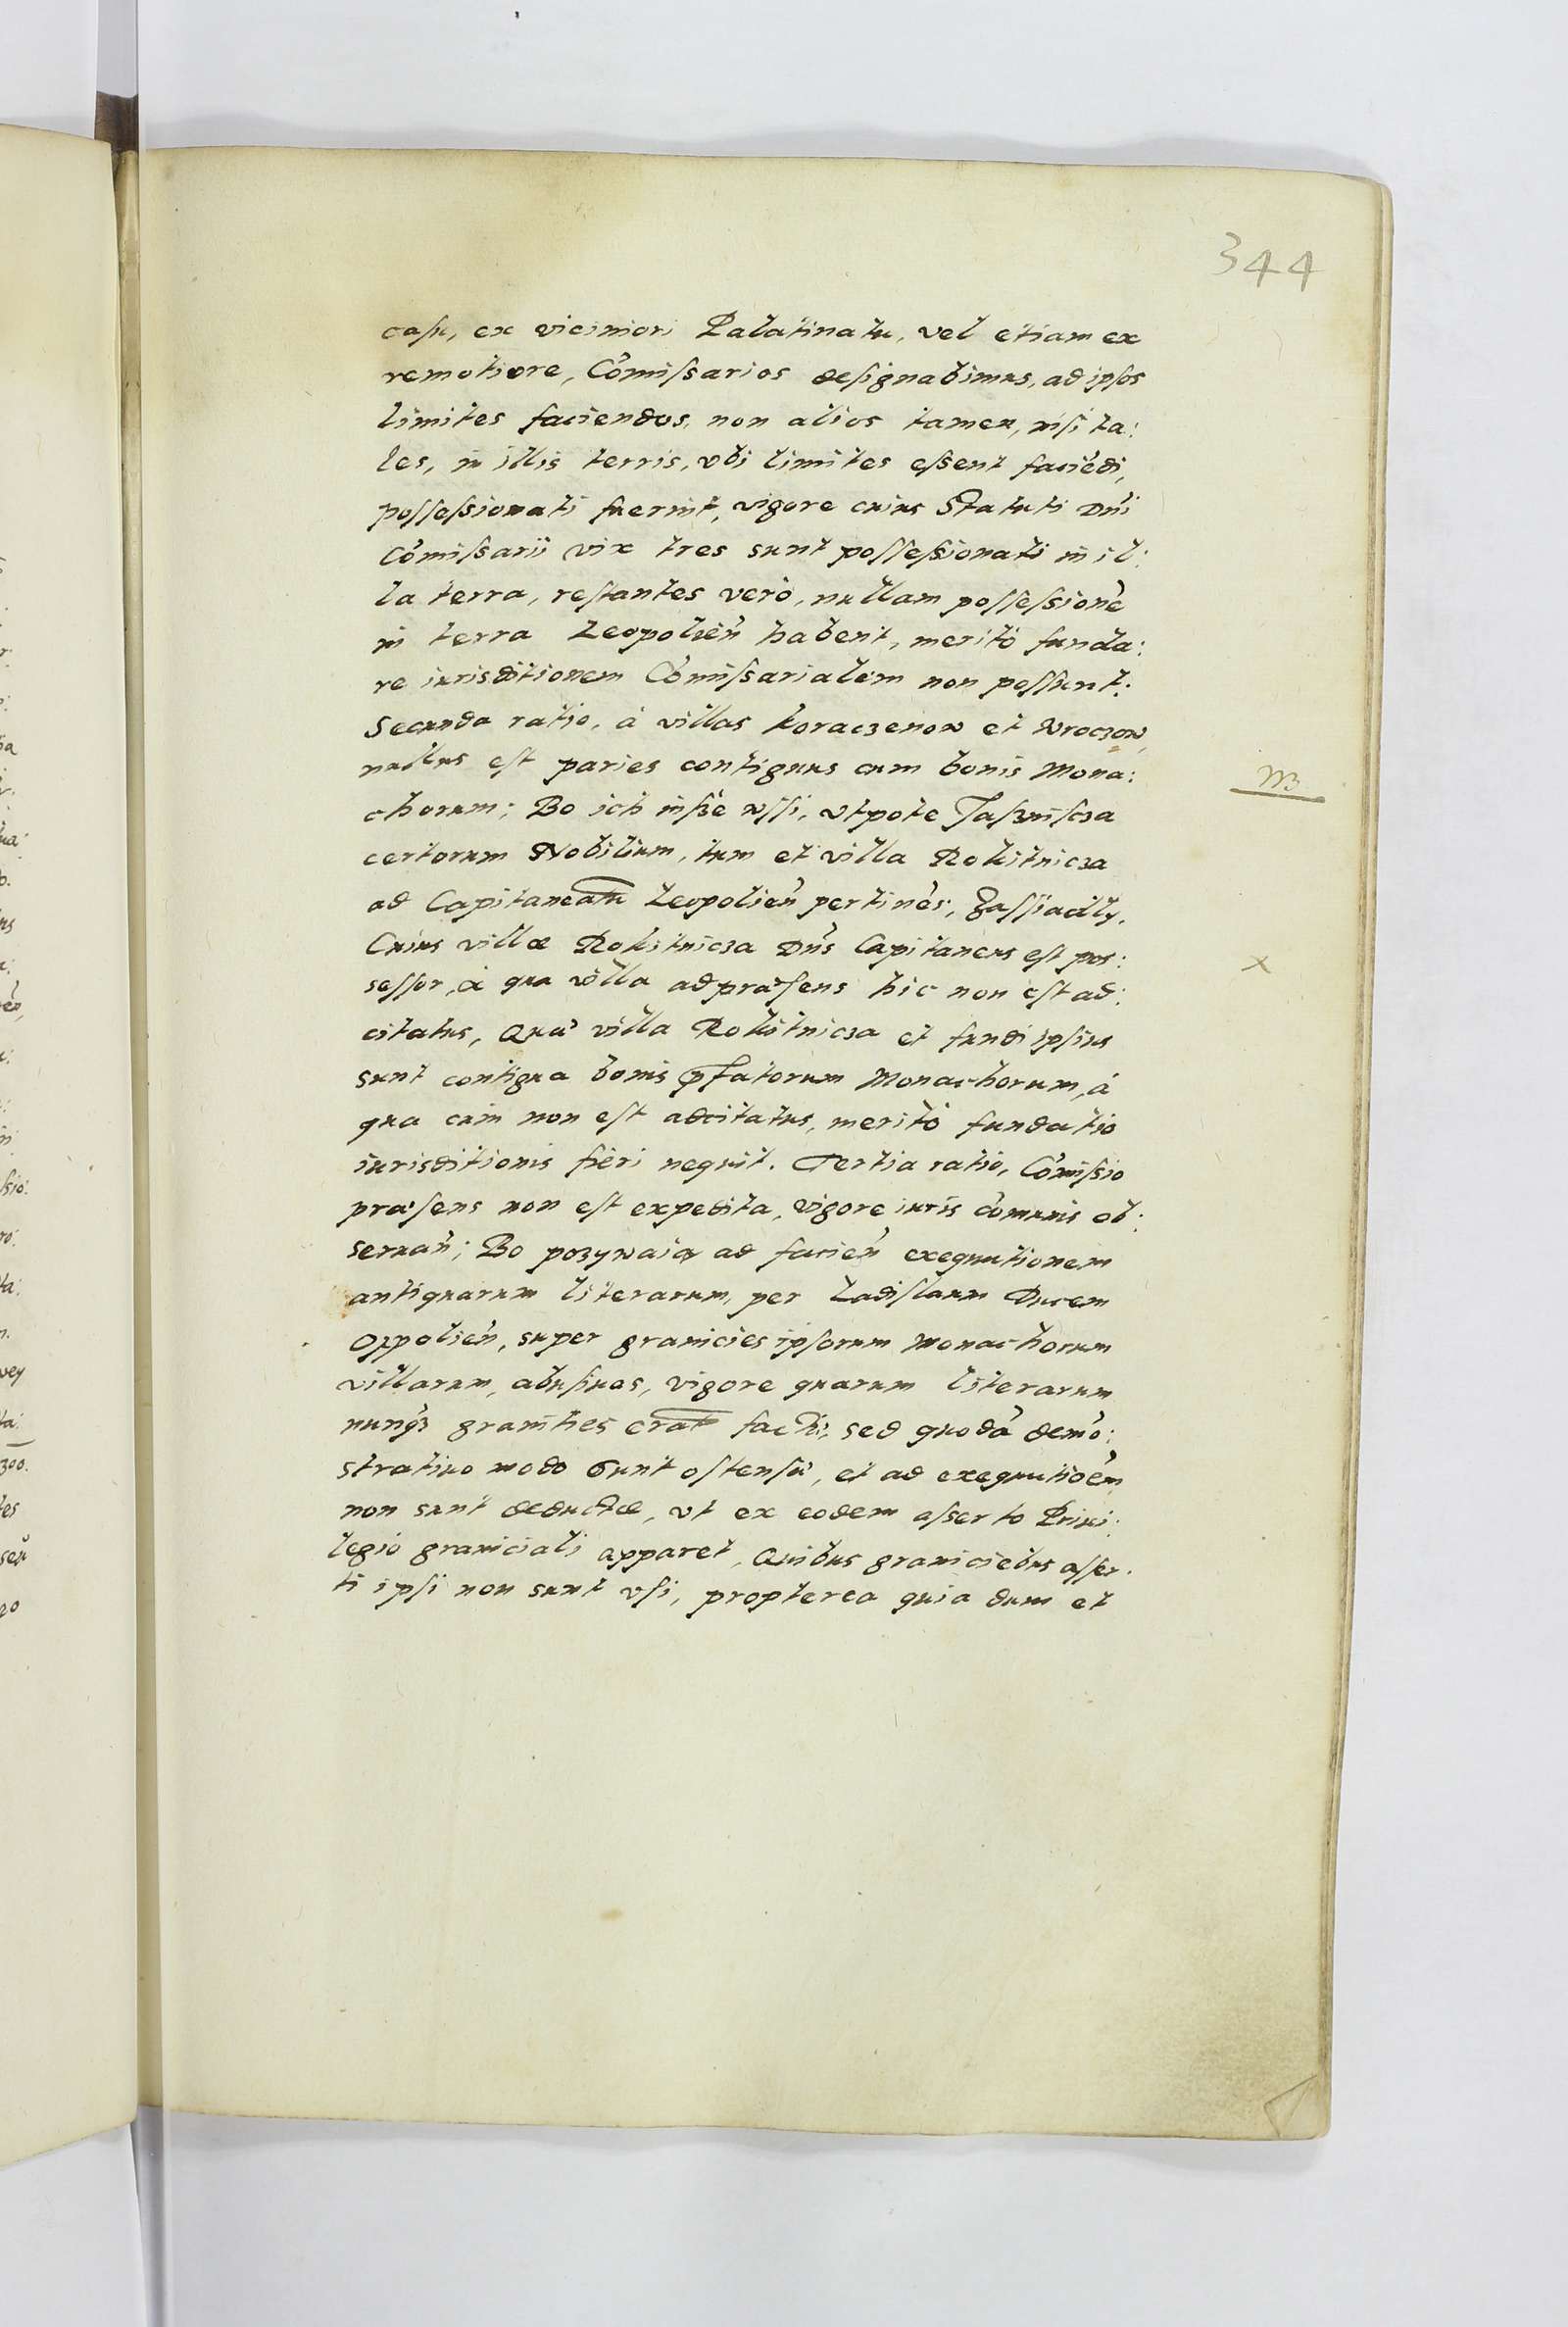 344
casu, ex viciniori Palatinatu, vel etiam ex
remotiore, Cōmissarios designabimus, ad ipsos
limites faciendos, non alios tamen, nisi ta:
les, in illis terris, vbi limites essent faciēdi,
possessionati fuerint, vigore cuius Statuti Dn̄i
Cōmissarii vix tres sunt possessionati in il:
la terra, restantes verò, nullam possessionē
in terra Leopolien̄ habent, meritò funda:
re iurisditionem Cōmissarialem non possunt:
Secunda ratio, à villas Koraczenow et Wroczow,
nullus est paries contiguus cum bonis Mona:
chorum; Bo ich insze wsi, vtpote
certorum Nobilium, tum et villa Rokitnicza
ad Capitaneatū Leopolien̄ pertinēs,
Cuius villæ Rokitnicza Dn̄s Capitaneus est pos:
sessor, à qua villa ad præsens hic non est ad:
citatus, Quæ villa Rokitnicza et fundi ipsius
sunt contigua bonis p̄fatorum Monachorum, à
qua cum non est adcitatus, meritò fundatio
iurisditionis fieri nequit. Tertia ratio, Cōmissio
præsens non est expedita, vigore iuris cōmunis ob:
seruan̄; Bo pozywaią ad facien̄ exequutionem
antiquarum literarum, per Ladislaum Ducem
Oppolien̄, super granicies ipsorum Monachorum
villarum, abusiuas, vigore quarum literarum
nunq̄3 granities erāt factæ, sed quodā demō:
stratiuo modo sunt ostensæ, et ad exequutiōem
non sunt deductæ, vt ex eodem asserto Priui:
legio graniciali apparet, Quibus graniciebus asser:
ti ipsi non sunt vsi, propterea quia dum et